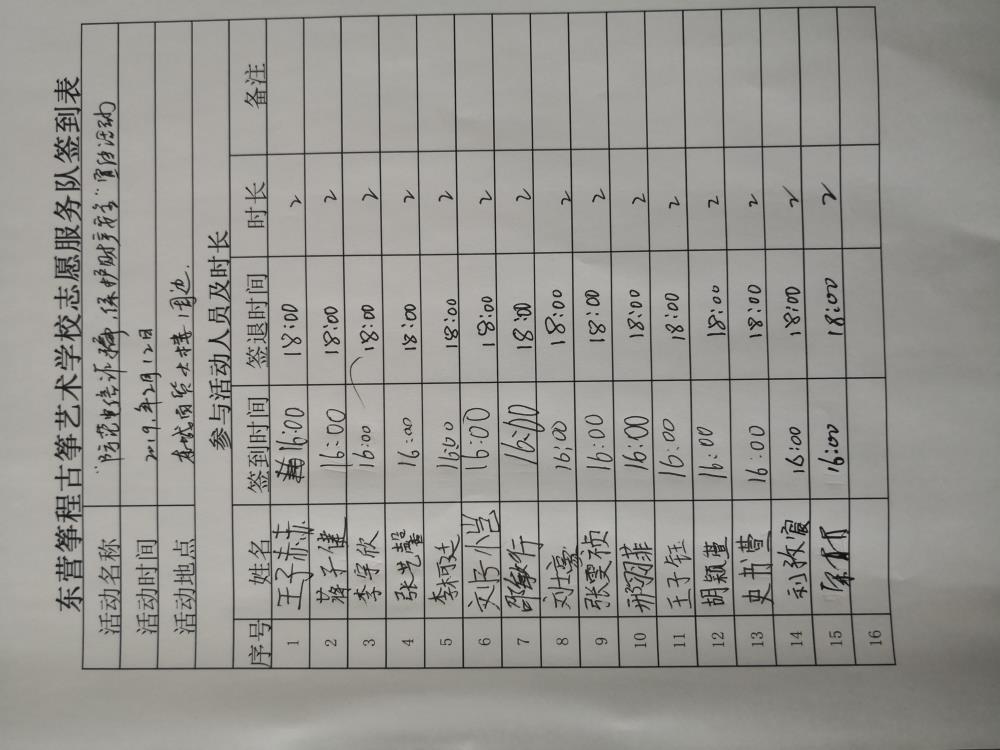 东营筝程古筝艺术学校志愿服务队签到表
活动名称 "防范电信诈骗,保护财产安全"宣传活动
活动时间 2019年2月12日
活动地点 东城百货大楼周边.
参与活动人员及时长
序号 姓名 签到时间 签退时间 时长 备注
1 王子赤 16:00 18:00 2
2 蒋子健 16:00 18:00 2
3 李宇欣 16:00 18:00 2
4 张艺馨 16:00 18:00 2
5 李可廷 16:00 18:00 2
6 刘小岂 16:00 18:00 2
7 邵敏行 16:00 18:00 2
8 刘士豪 16:00 18:00 2
9 张雯祯 16:00 18:00 2
10 邢羽菲 16:00 18:00 2
11 王子钰 16:00 18:00 2
12 胡颖萱 16:00 18:00 2
13 史书萱 16:00 18:00 2
14 16:00 18:00 2
15 16:00 18:00 2
16